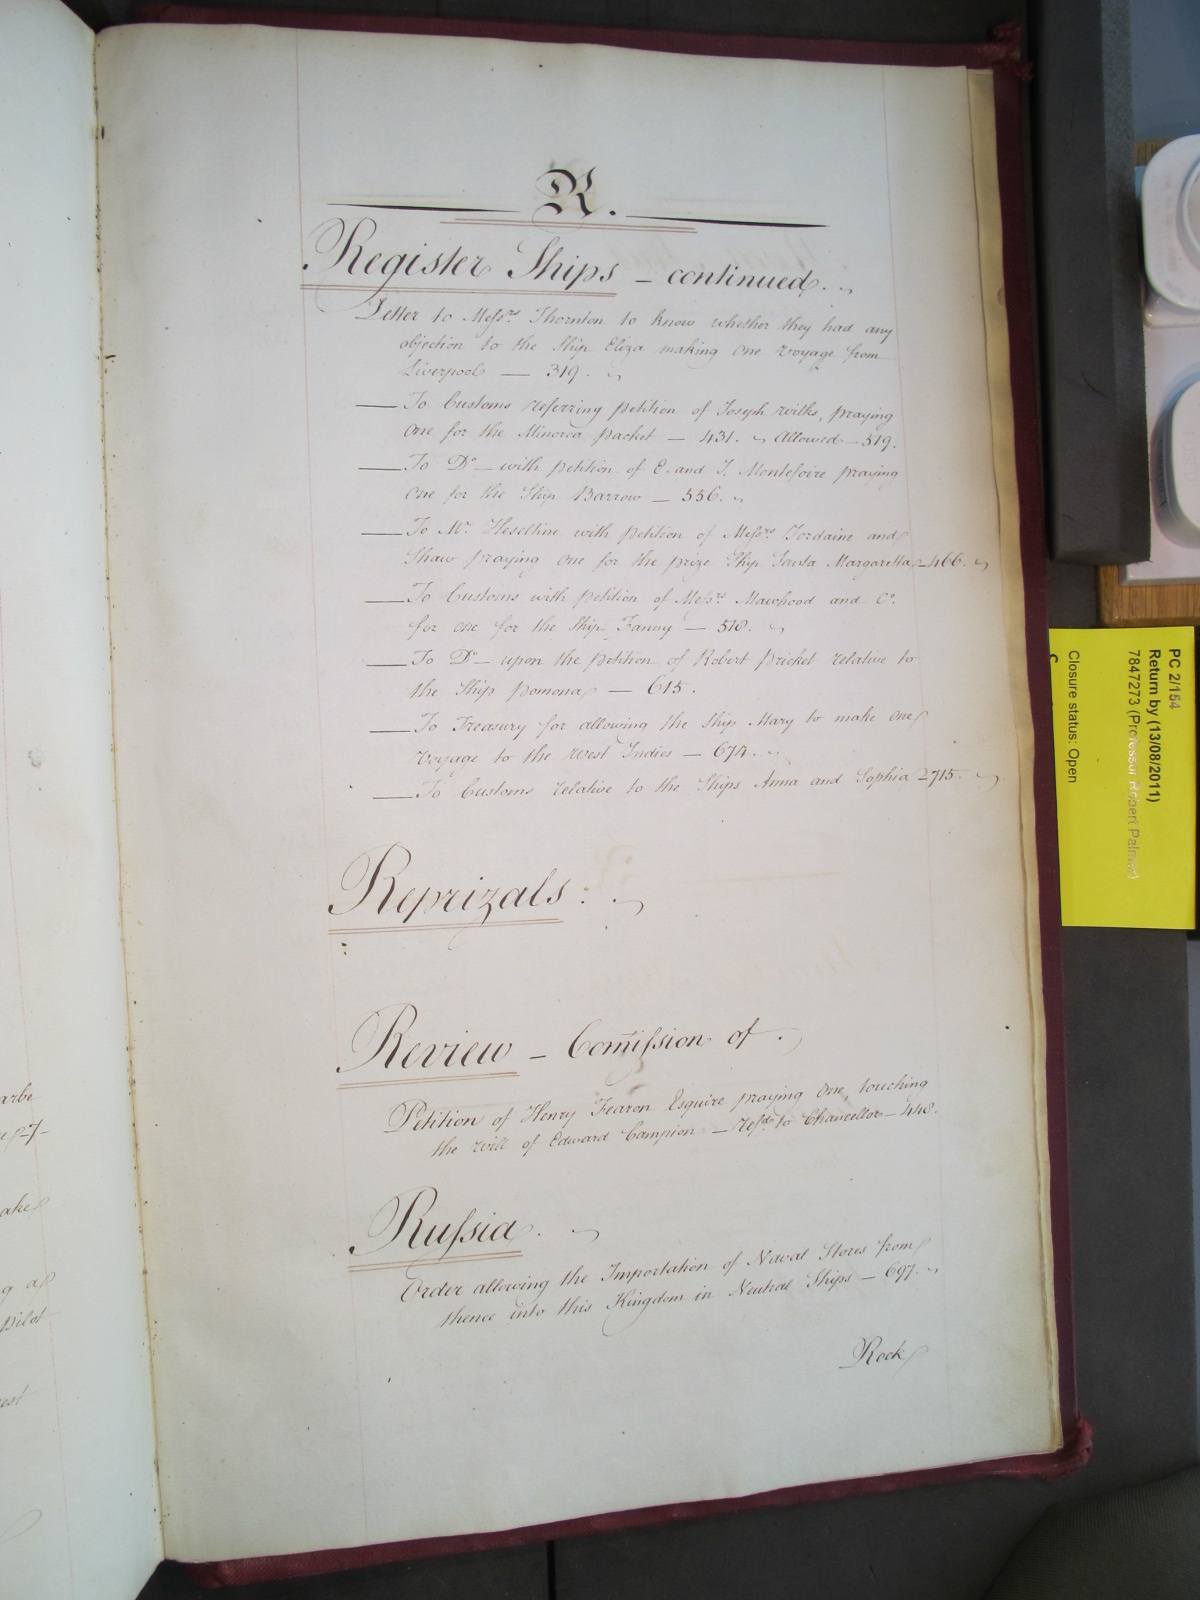 R.
Register Ships - continued.
Letter to Messrs. Thornton to know whether they had any
objection to the Ship Eliza making one voyage from
Liverpool — 319.
— To Customs referring petition of Joseph Wilks, praying
one for the Minorca packet — 431. Allowed — 519.
— To Do. — with petition of E. and J. Montefoire praying
one for the Ship Barrow — 556.
— To Mr. Heseltine with petition of Messrs. Jordaine and
Shaw praying one for the prize Ship Santa Margaretta — 466.
— To Customs with petition of Messrs. Mawhood and Co.
for one for the Ship Fanny — 518.
— To Do. — upon the petition of Robert Pricket relative to
the Ship Pomona — 615.
— To Treasury for allowing the Ship Mary to make one
voyage to the West Indies — 674.
— To Customs relative to the Ships Anna and Sophia — 715.
Reprizals.
Review - Comission of.
Petition of Henry Fearon Esquire praying one, touching
the will of Edward Campion — Refd. to Chancellor — 448.
Russia.
Order allowing the Importation of Naval Stores from
thence into this Kingdom in Neutral Ships — 697.
Rock
arbe
ake
g a
pilot
est
PC 2/154
Return by (13/08/2011)
7847273 (Professor Robert Palmer)
Closure status: Open